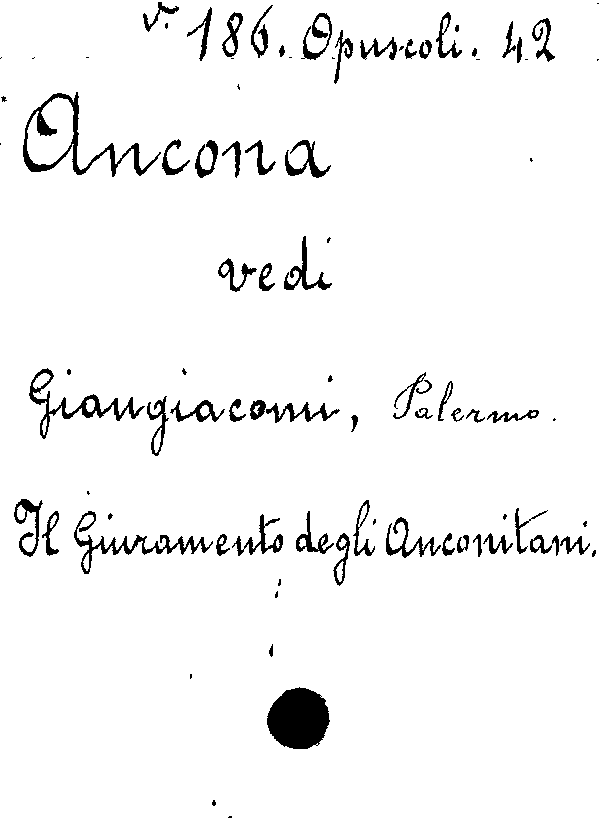 v. 186. Opuscoli. 42
Ancona
vedi
Giangiacomi, Palermo.
Il Giuramento degli Anconitani.